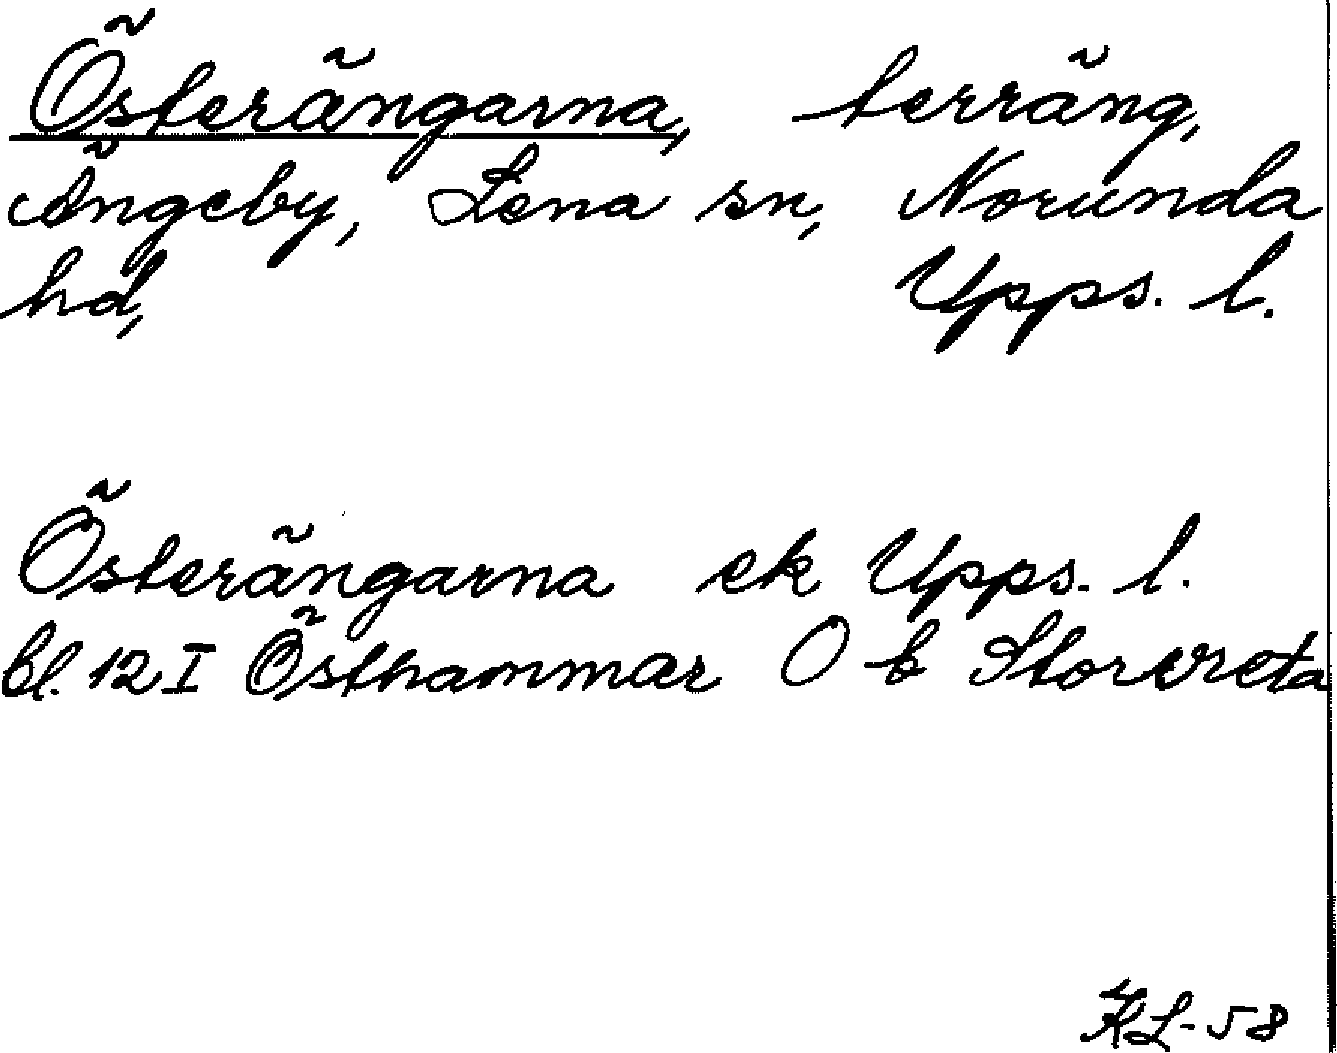 Österängarna, terräng,
Ängeby, Lena sn, Norunda
hd, Upps. l.
Österängarna ek Upps. l.
bl. 12 I Östhammar O b Storvreta
KL-58